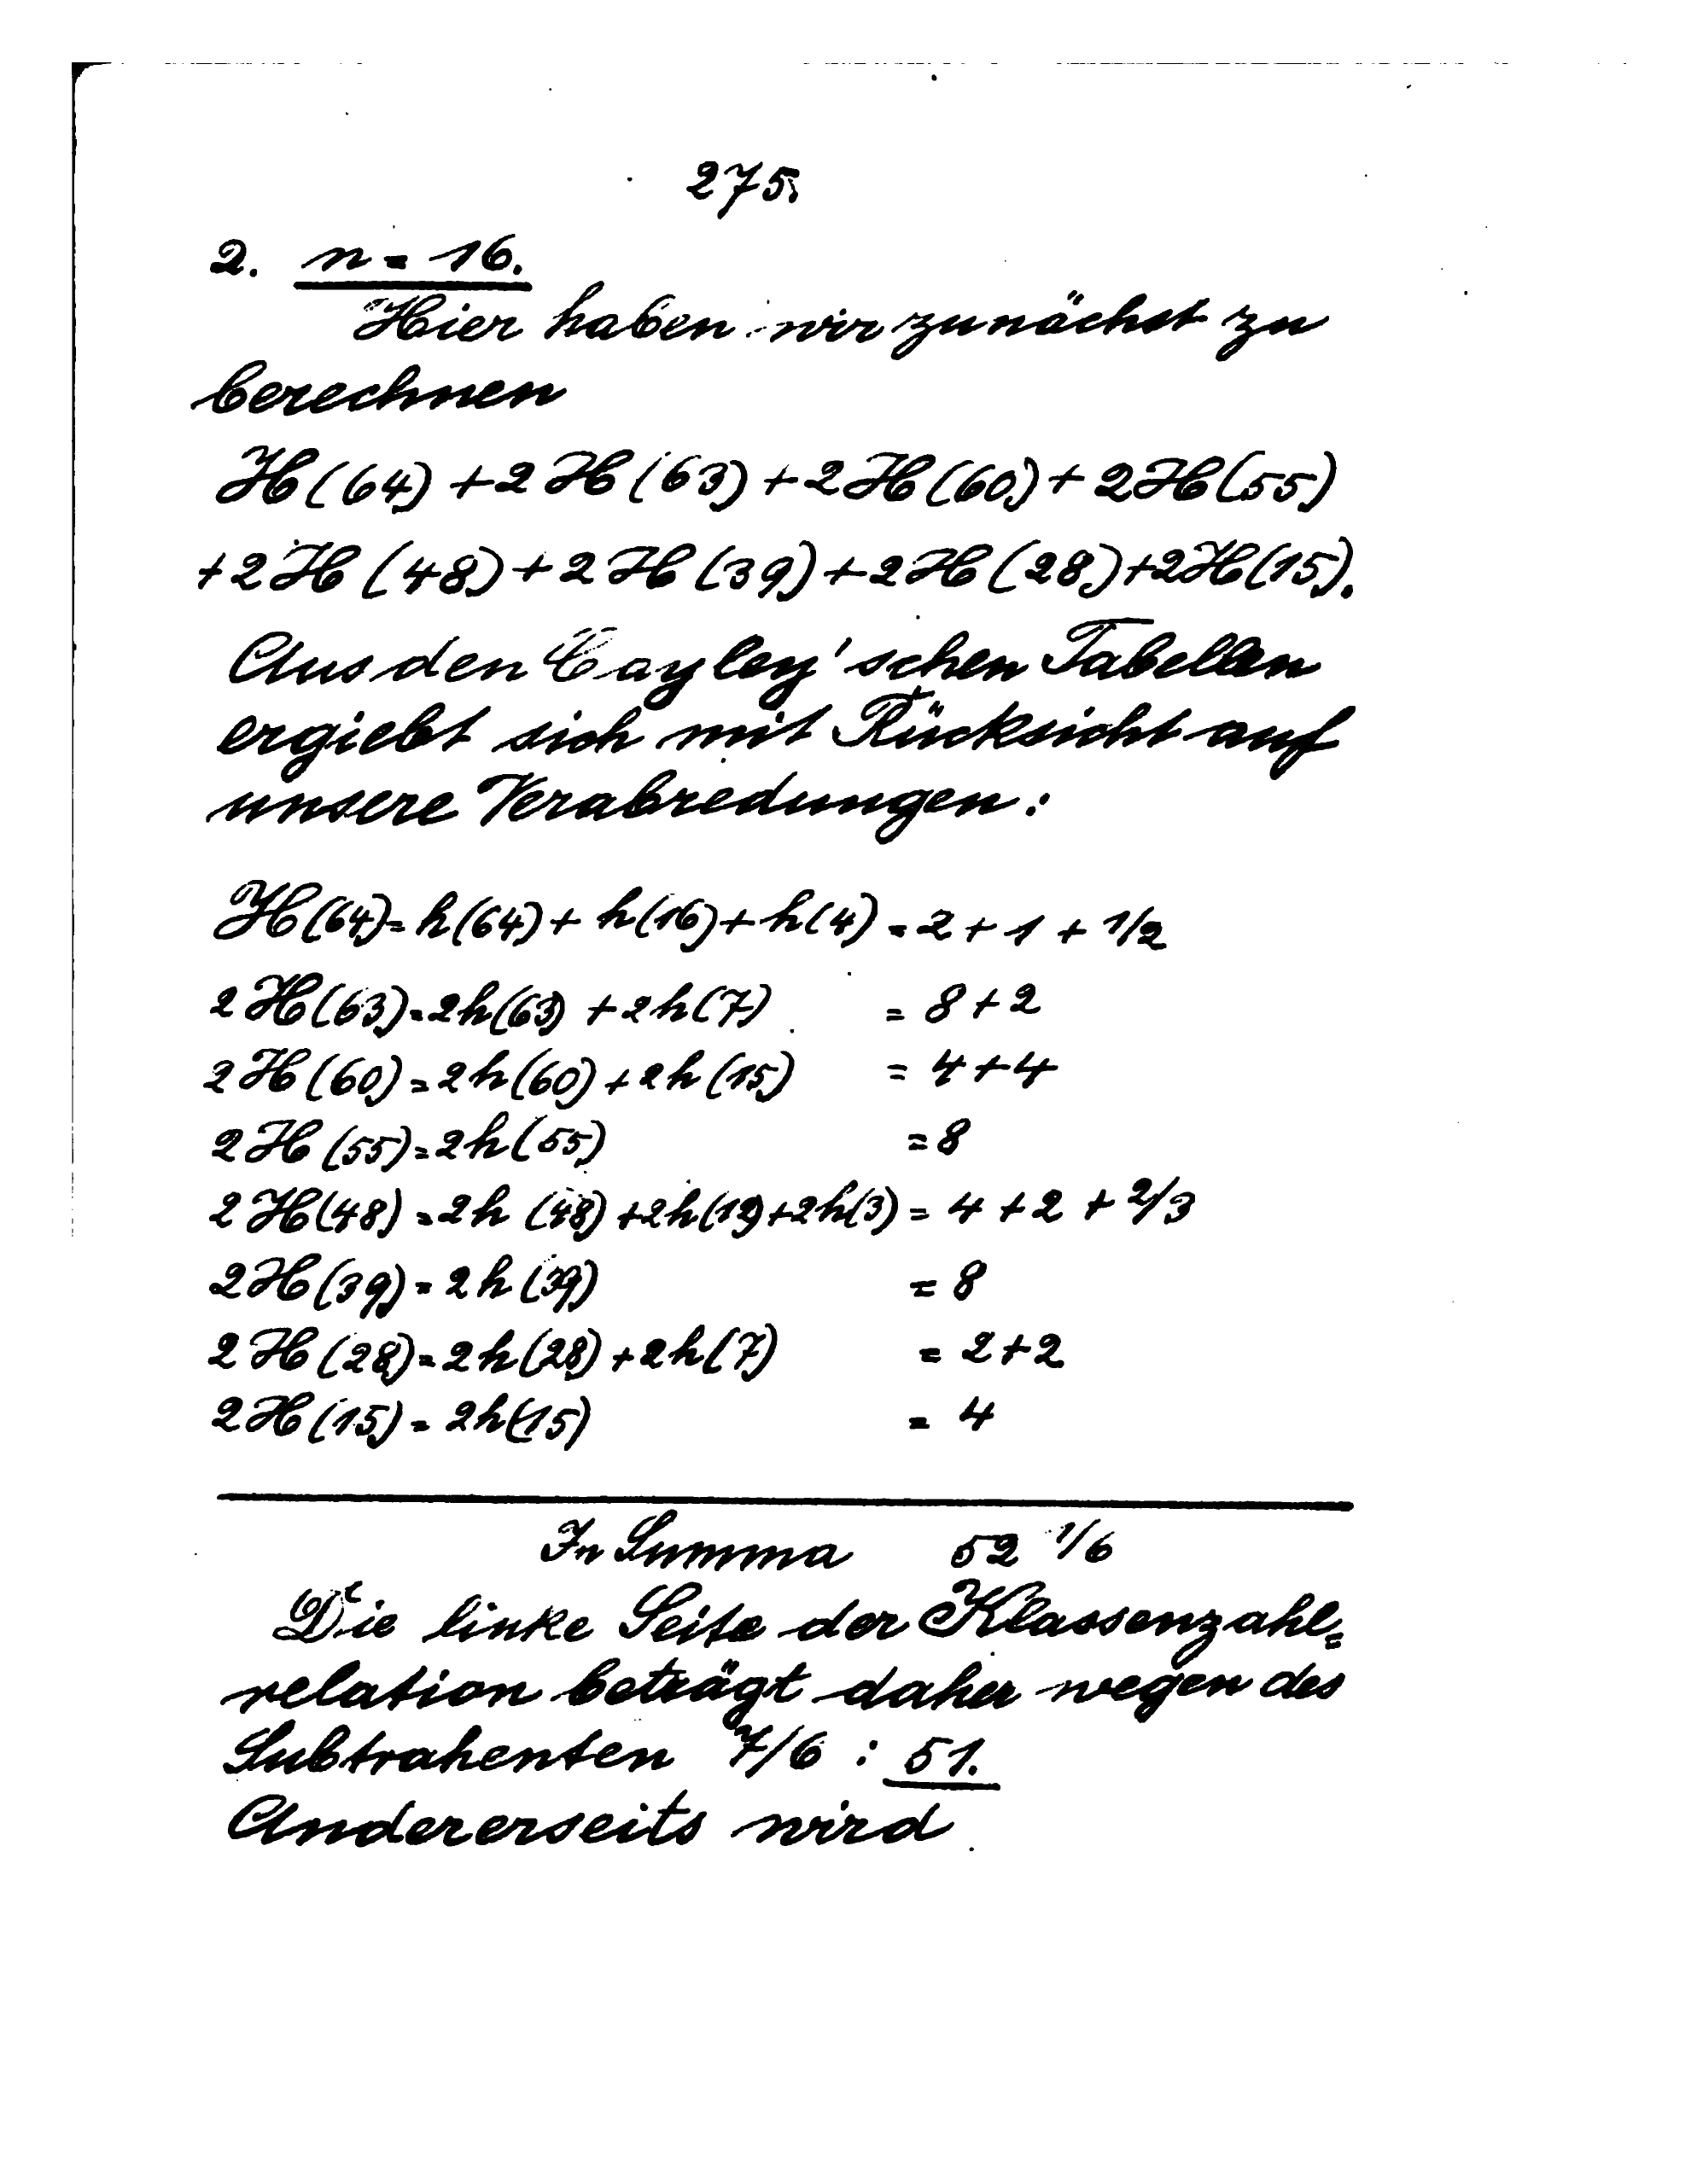 275.
2. n = 16.
Hier haben wir zunächst zu
berechnen
H(64) + 2H(63) + 2H(60) + 2H(55)
+ 2H(48) + 2H(39) + 2H(28) + 2H(15).
Aus den Cayley'schen Tabellen
ergiebt sich mit Rücksicht auf
unsere Verabredungen:
H(64) = h(64) + h(16) + h(4) = 2 + 1 + 1/2
2H(63) = 2h(63) + 2h(7) = 8 + 2
2H(60) = 2h(60) + 2h(15) = 4 + 4
2H(55) = 2h(55) = 8
2H(48) = 2h(48) + 2h(12) + 2h(3) = 4 + 2 + 2/3
2H(39) = 2h(39) = 8
2H(28) = 2h(28) + 2h(7) = 2 + 2
2H(15) = 2h(15) = 4
In Summa 52 1/6
Die linke Seite der Klassenzahl=
relation beträgt daher wegen des
Subtrahenten 7/6 : 51.
Andererseits wird